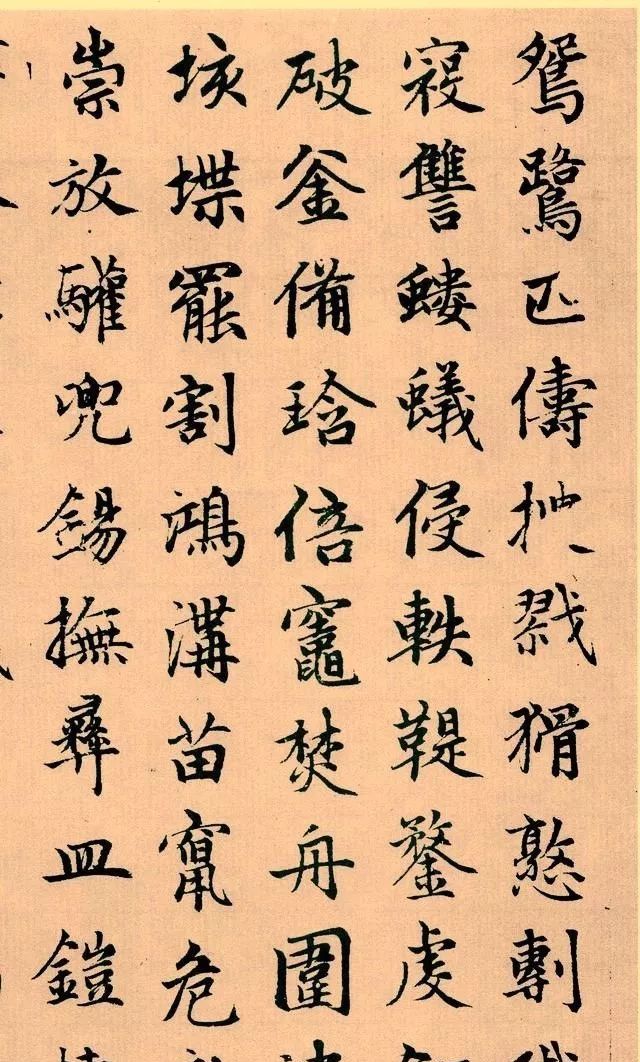 鴛鷺匹儔抰戮猾憝剸
寇讐螻蟻侵軼鞮鍪虔
破釜備琀倍竈焚舟圍
垓堞罷割鴻溝苗竄危
崇放驩兜錫撫彝皿鎧